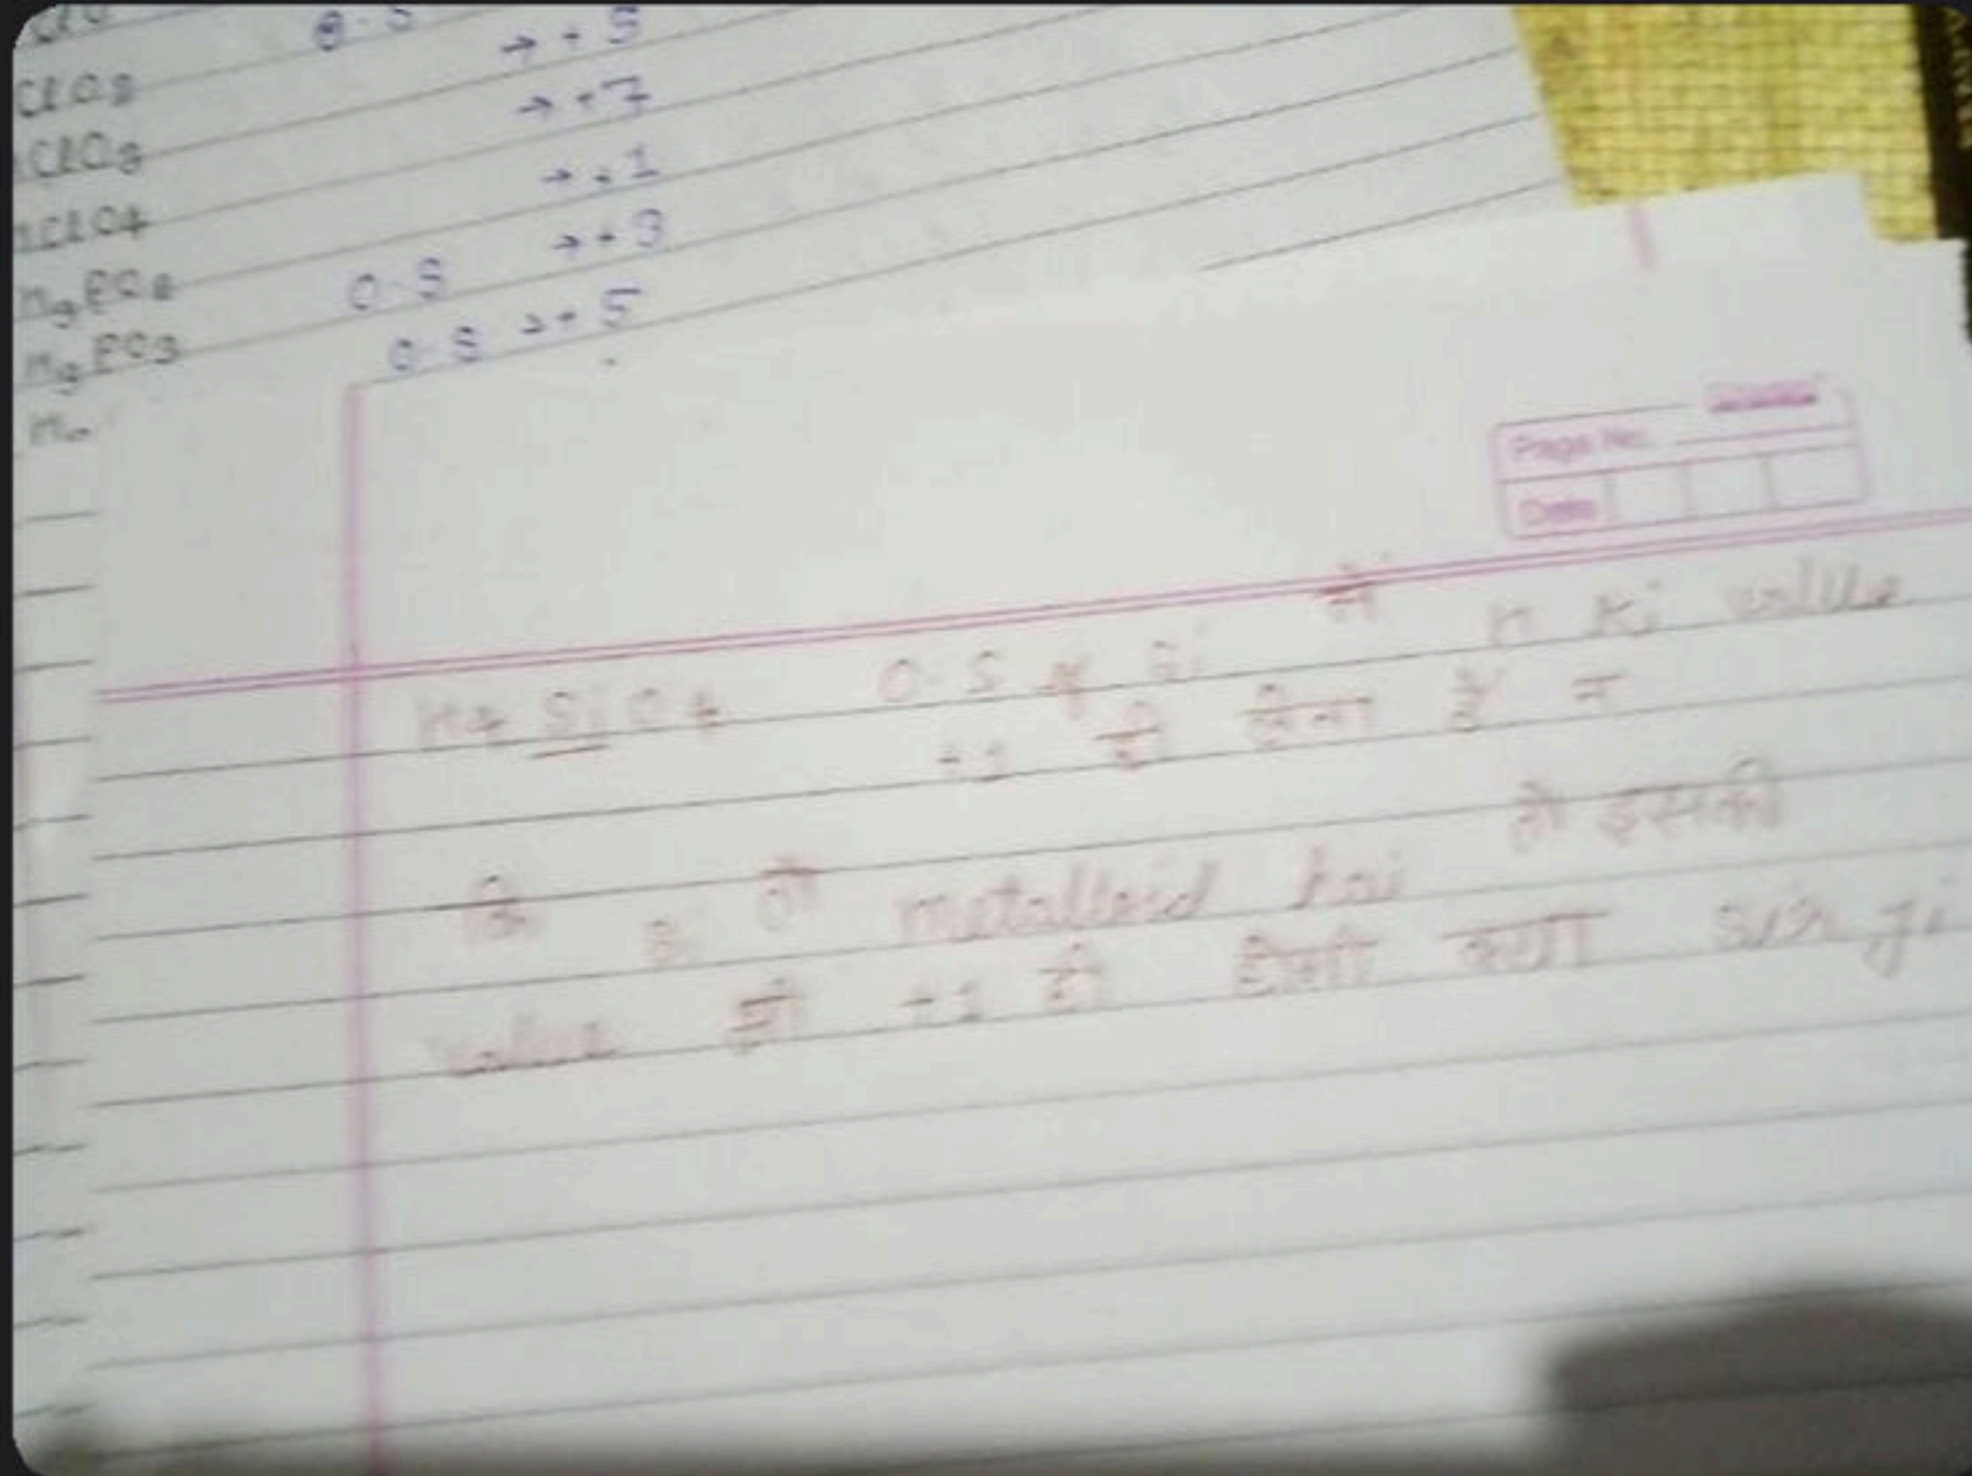 ClO3 → +5
ClO3 → +7
ClO4 → +1
H3PO2 O.S → +3
H3PO3 O.S → +5
Page No.
Date
H4SiO4 O.S of Si में H ki value
+1 ही लेना है न
कि Si तो metalloid hai तो इसकी
value भी +1 ही होगी क्या sir ji